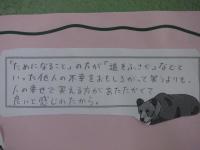 「ためになること」の方が「道をふさぐ」などと
いった他人の不幸をおもしろがって笑うよりも、
人の幸せで笑える方があたたかくて
良いと感じれたから。